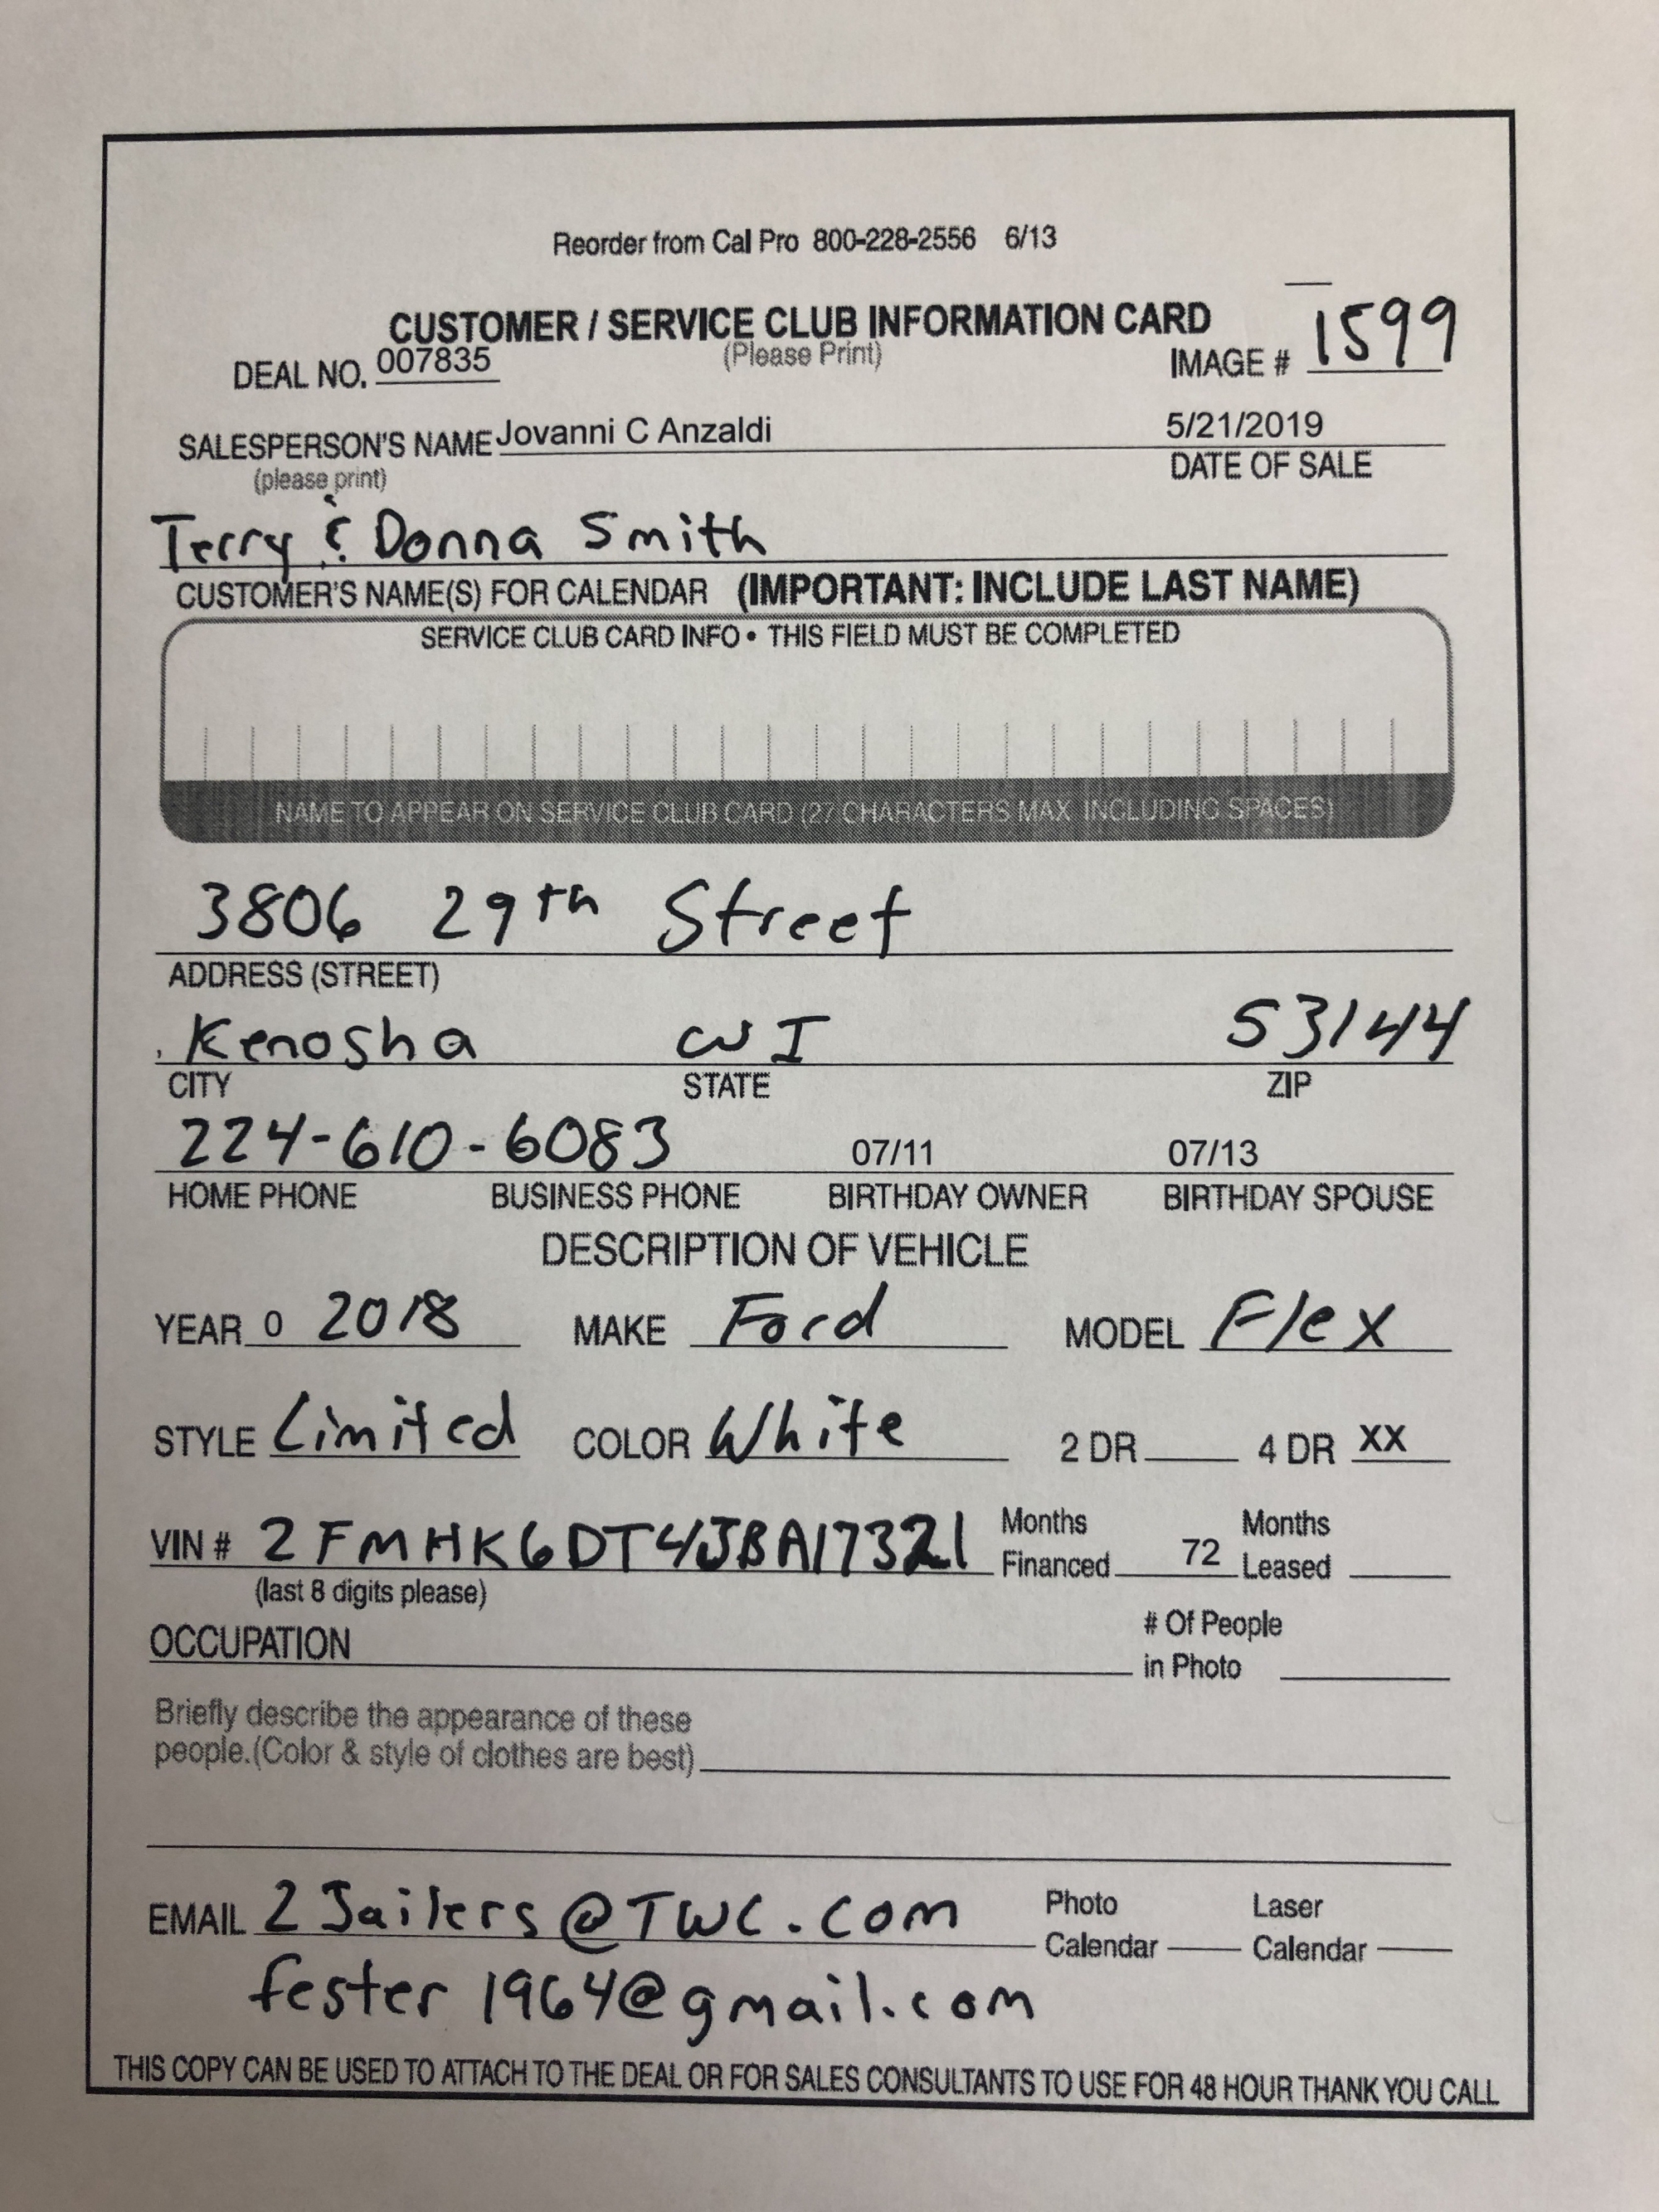 Reorder from Cal Pro 800-228-2556 6/13
CUSTOMER / SERVICE CLUB INFORMATION CARD
(Please Print)
DEAL NO. 007835 IMAGE # 1599
SALESPERSON'S NAME Jovanni C Anzaldi 5/21/2019
(please print) DATE OF SALE
Terry & Donna Smith
CUSTOMER'S NAME(S) FOR CALENDAR (IMPORTANT: INCLUDE LAST NAME)
SERVICE CLUB CARD INFO • THIS FIELD MUST BE COMPLETED
NAME TO APPEAR ON SERVICE CLUB CARD (27 CHARACTERS MAX INCLUDING SPACES)
3806 29th Street
ADDRESS (STREET)
Kenosha WI 53144
CITY STATE ZIP
224-610-6083 07/11 07/13
HOME PHONE BUSINESS PHONE BIRTHDAY OWNER BIRTHDAY SPOUSE
DESCRIPTION OF VEHICLE
YEAR 0 2018 MAKE Ford MODEL Flex
STYLE Limited COLOR White 2 DR 4 DR XX
VIN # 2FMHK6DT4JBA17321 Months Financed 72 Months Leased
(last 8 digits please)
OCCUPATION # Of People in Photo
Briefly describe the appearance of these
people.(Color & style of clothes are best)
EMAIL 2Jailers@TWC.com Photo Calendar Laser Calendar
fester1964@gmail.com
THIS COPY CAN BE USED TO ATTACH TO THE DEAL OR FOR SALES CONSULTANTS TO USE FOR 48 HOUR THANK YOU CALL